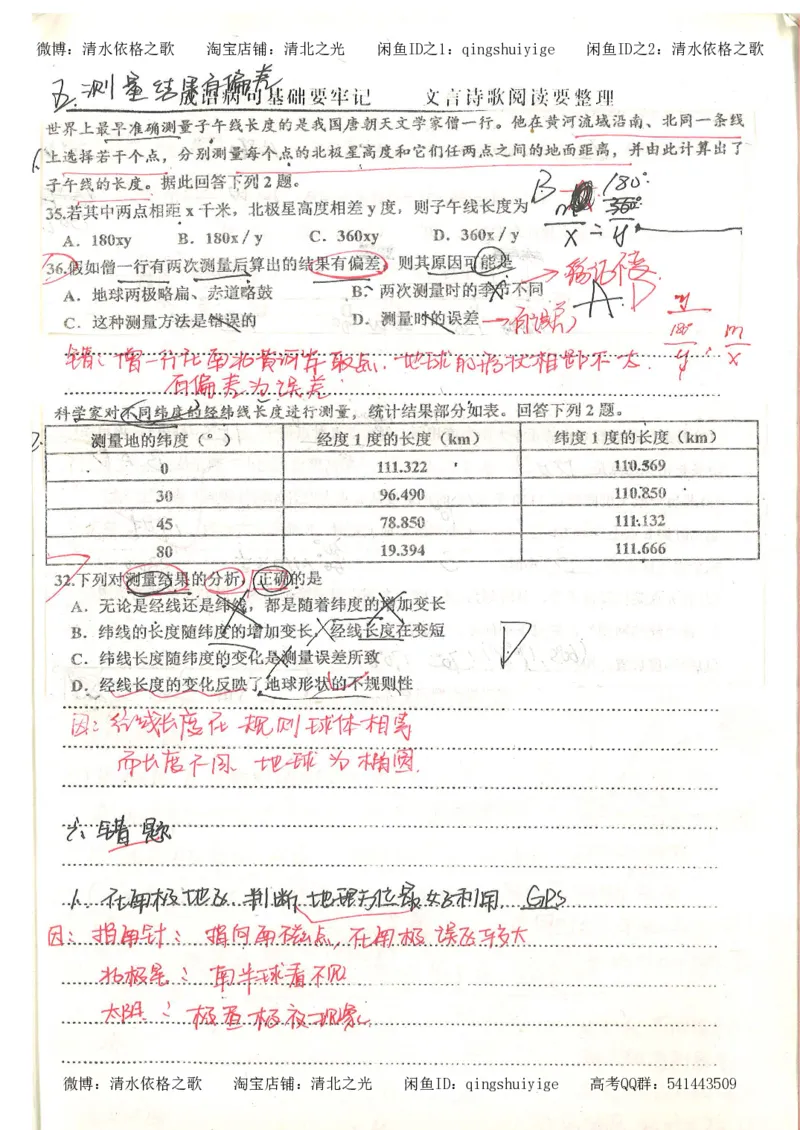 微博：清水依格之歌 淘宝店铺：清北之光 闲鱼ID之1：qingshuiyige 闲鱼ID之2：清水依格之歌
五.测量结果有偏差
成语病句基础要牢记 文言诗歌阅读要整理
世界上最早准确测量子午线长度的是我国唐朝天文学家僧一行。他在黄河流域沿南、北同一条线
1. 上选择若干个点，分别测量每个点的北极星高度和它们任两点之间的地面距离，并由此计算出了
子午线的长度。据此回答下列2题。
35.若其中两点相距x千米，北极星高度相差y度，则子午线长度为 B
A．180xy B．180x / y C．360xy D．360x / y
m/x = 180°/y
36.假如僧一行有两次测量后算出的结果有偏差，则其原因可能是
A．地球两极略扁、赤道略鼓 B．两次测量时的季节不同
C．这种测量方法是错误的 D．测量时的误差
A D
错：僧一行在南北黄河岸取点.地球的形状相距不大.
有偏差为误差.
科学家对不同纬度的经纬线长度进行测量，统计结果部分如表。回答下列2题。
2.
测量地的纬度（°） 经度1度的长度（km） 纬度1度的长度（km）
0 111.322 110.569
30 96.490 110.850
45 78.850 111.132
80 19.394 111.666
32.下列对测量结果的分析，正确的是
A．无论是经线还是纬线，都是随着纬度的增加变长
B．纬线的长度随纬度的增加变长，经线长度在变短
C．纬线长度随纬度的变化是测量误差所致
D．经线长度的变化反映了地球形状的不规则性
D
因：经线长度在规则球体相等
而长度不同 地球为椭圆.
六.错题
1. 在南极地区.判断地理方位最好利用 GPS
因：指南针：指向南磁点,在南极误区较大
北极星：南半球看不见
太阳：极昼极夜现象.
微博：清水依格之歌 淘宝店铺：清北之光 闲鱼ID：qingshuiyige 高考QQ群：541443509